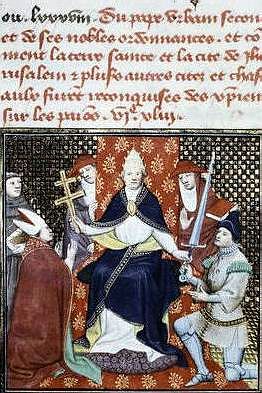 Du pape urbain secon
et de ses nobles ordonnances. et cō
ment la terre sainte et la cite de ihe
rusalem et plus̄s autres citez et chast
aulx furēt reconquises des xp̄iens
sur les paiēs. xliii.